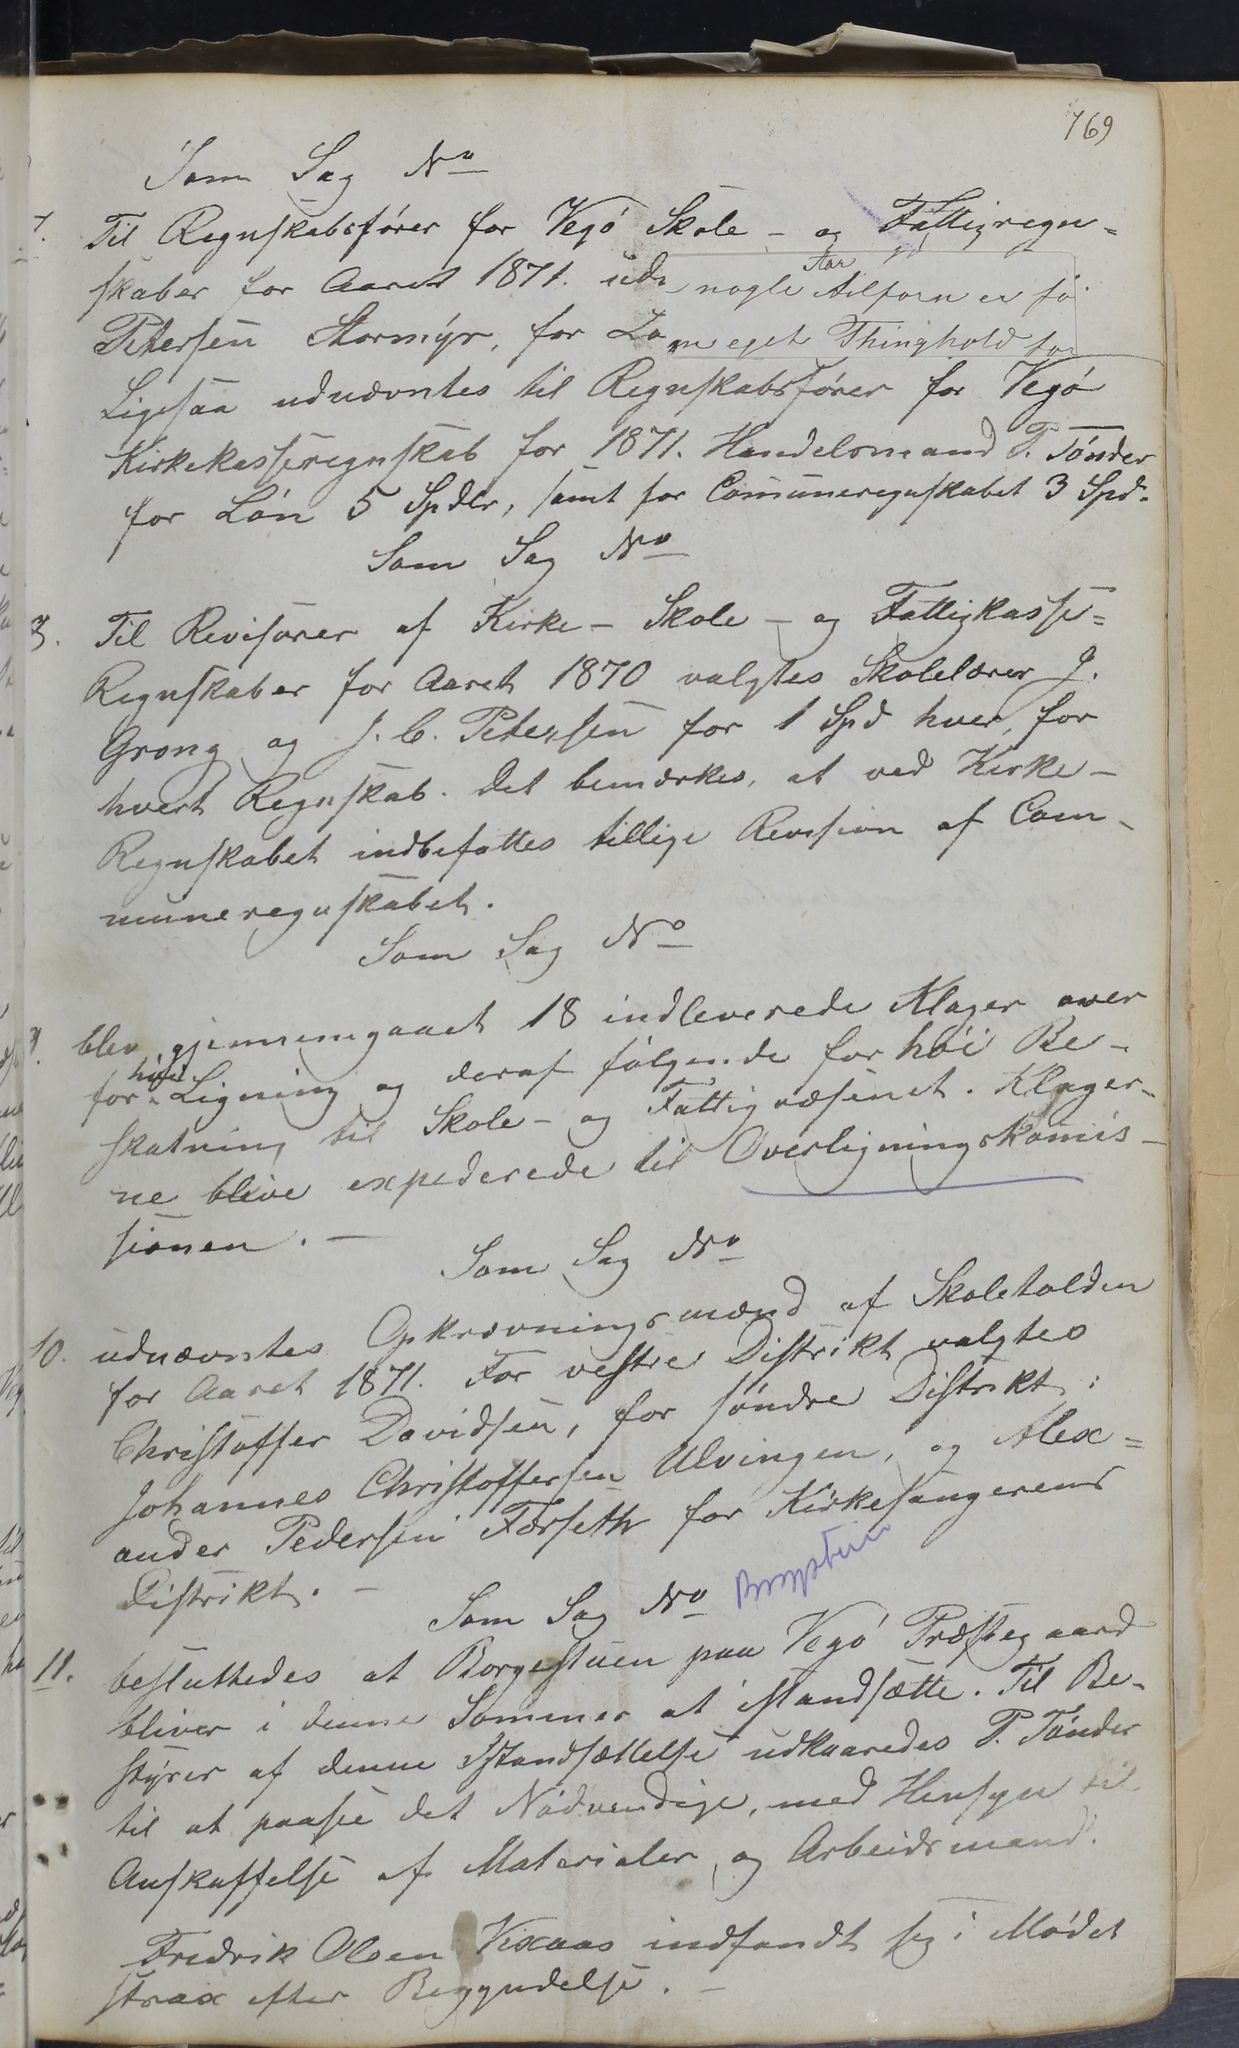 169
Som Sag No
7. Til Regnskabsfører for Vegø Skole- og Fattigregn=
skaber for Aaret 1871. ud nogle Aar tilforn er
Petersen Stormyr, for eget Thinghold for
Ligesaa udnævntes til Regnskabsfører for Vegø
Kirkekasseregnskab for 1871. Handelsmand P. Tønder
for Løn 5 Spdlr, samt for Communeregnskabet 3 Spd.
Som Sag No
Til Revisorer af Kirke- Skole- og Fattigkasse=
Regnskaber for Aaret 1870 valgtes Skolelærer J.
Grong og J. C. Petersen for 1 Spd hver, for
hvert Regnskab. Det bemærkes, at ved Kirke-
Regnskabet indbefattes tillige Revision af Com-
muneregnskabet.
Som Sag No
blev gjennemgaaet 18 indleverede Klager over
for høi Ligning og deraf følgende for høi Be-
skatning til Skole- og Fattigvæsenet. Klager-
ne blive expederede til Overligningskomis-
sionen. -
Som Sag No
10. udnævntes Opkrævningsmænd af Skoletolden
for Aaret 1871. For vestre Distrikt valgtes
Christoffer Davidsen, for søndre Distrikt:
Johannes Christoffersen Ulvingen, og Alex=
ander Pedersen Færseth for Kirkesangerens
Distrikt. -
Som Sag No
11. besluttedes at Borgestuen paa Vegø Præstegaard
bliver i denne Sommer at istandsætte. Til Be-
styrer af denne Istandsættelse udkaaredes P. Tønder
til at paasee det Nødvendige, med Hensyn til
Anskaffelse af Materialer og Arbeidsmand.
Fredrik Olsen Vixaas indfandt sig i Mødet
strax efter Begyndelse. -